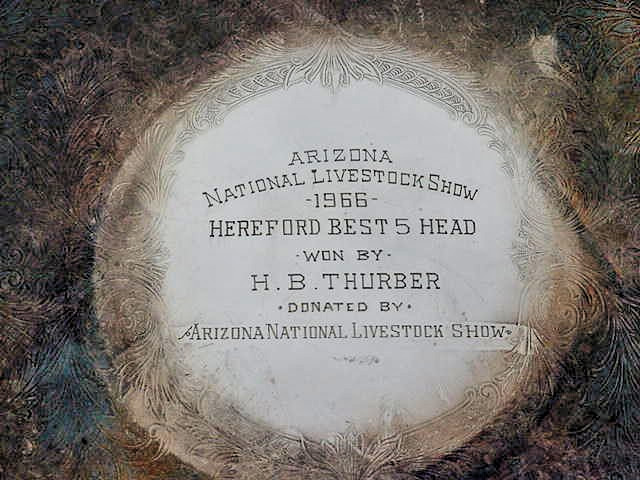 ARIZONA
NATIONAL LIVESTOCK SHOW
-1966-
HEREFORD BEST 5 HEAD
-WON BY-
H.B. THURBER
•DONATED BY•
ARIZONA NATIONAL LIVESTOCK SHOW